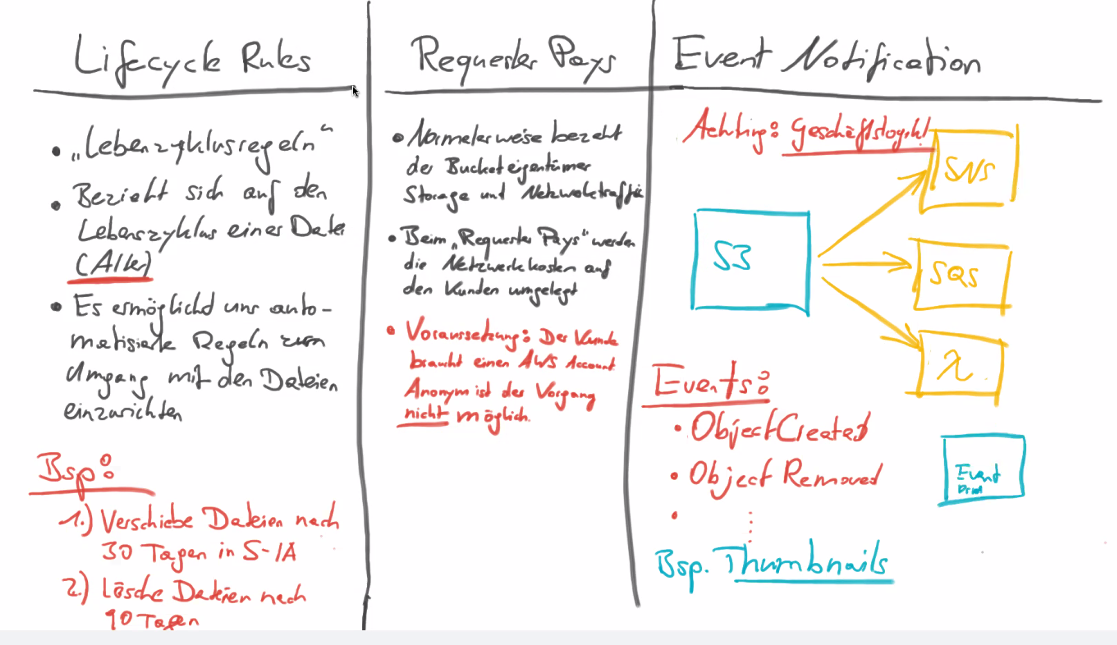 Lifecycle Rules
• „Lebenszyklusregeln“
• Bezieht sich auf den
Lebenszyklus einer Datei
(Alter)
• Es ermöglicht uns auto-
matisierte Regeln zum
Umgang mit den Dateien
einzurichten
Bsp:
1.) Verschiebe Dateien nach
30 Tagen in S-IA
2.) Lösche Dateien nach
90 Tagen
Requester Pays
• Normalerweise bezahlt
der Bucketeigentümer
Storage und Netzwerktraffic
• Beim „Requester Pays“ werden
die Netzwerkkosten auf
den Kunden umgelegt
• Voraussetzung: Der Kunde
braucht einen AWS Account
Anonym ist der Vorgang
nicht möglich.
Event Notification
Achtung: Geschäftslogik!
SNS
S3
SQS
λ
Events:
• ObjectCreated
• Object Removed
•
Event
Bsp. Thumbnails